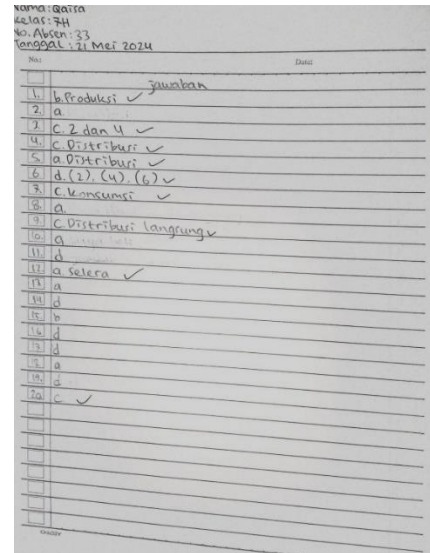 Nama: Qaisa
Kelas: 7H
No. Absen: 33
Tanggal: 21 Mei 2024
No.: Date:
jawaban
1. b. Produksi ✓
2. a
3. c. 2 dan 4 ✓
4. c. Distribusi ✓
5 a. Distribusi ✓
6 d. (2), (4), (6) ✓
7. c. konsumsi ✓
8. a.
9. c. Distribusi langsung ✓
10. a
11. d
12. a selera ✓
13. a
14 d
15. b
16 d
17. d
18. a
19. d
20. c ✓